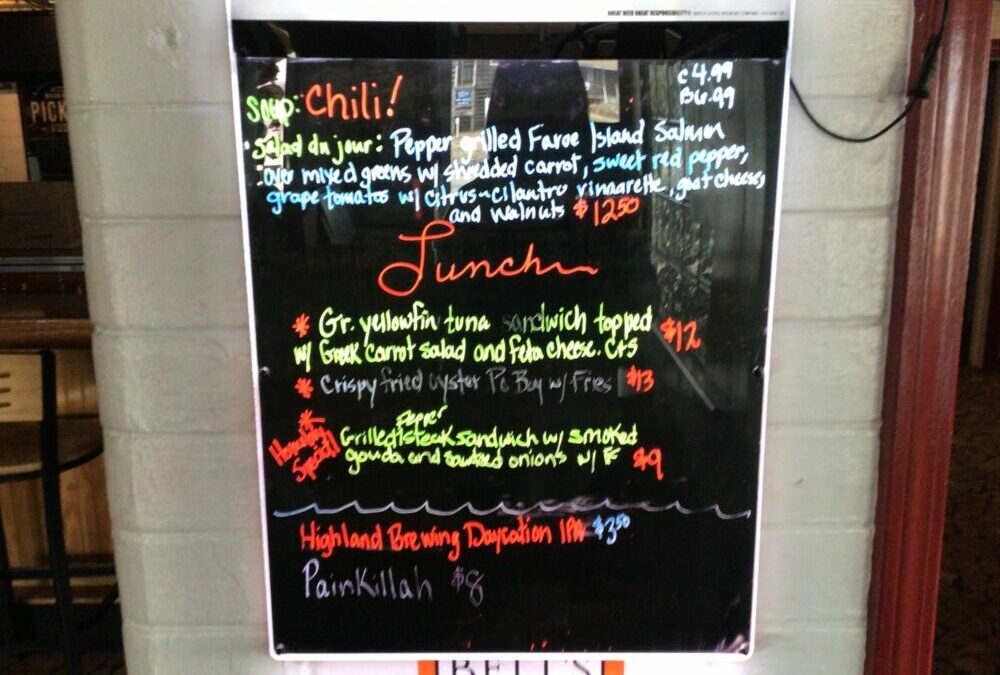 GREAT BEER GREAT RESPONSIBILITY®
C 4.99
B 6.99
Soup: Chili!
Salad du jour: Pepper grilled Faroe Island Salmon
over mixed greens w/ shredded carrot, sweet red pepper,
grape tomatos w/ citrus-cilantro vinaarette, goat cheese,
and walnuts $1250
Lunch
* Gr. yellowfin tuna sandwich topped $12
w/ Greek carrot salad and feta cheese.
* Crispy fried oyster Po Boy w/ Fries $13
* Grilled Pepper steak sandwich w/ smoked
Special gouda and sauteed onions w/ FF $9
Highland Brewing Daycation IPA $350
PainKillah $8
BELL'S
PICK